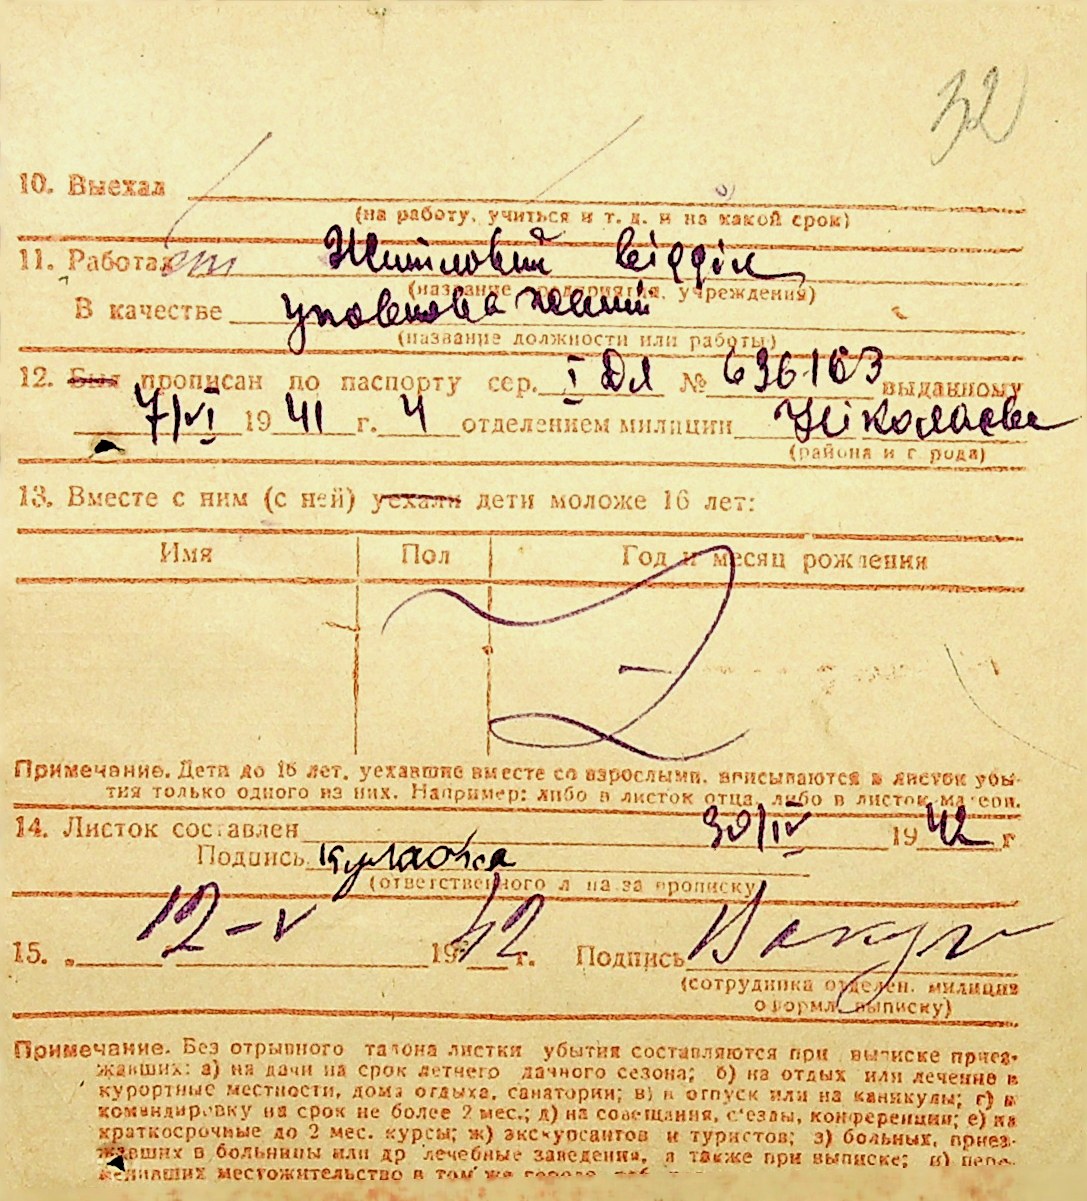 32
10. Выехал
(на работу, учиться и т. д. и на какой срок)
11. Работа ет Житловий відділ
(название предприятия, учреждения)
В качестве уповноважений
(название должности или работы)
12. Был прописан по паспорту сер. I ДЛ № 696103 выданному
7/VI 1941 г. 4 отделением милиции Ніколаєва
(района и города)
13. Вместе с ним (с ней) уехали дети моложе 16 лет:
Имя Пол Год и месяц рождения
Примечание. Дети до 16 лет, уехавшие вместе со взрослыми, вписываются в листок убы-
тия только одного из них. Например: либо в листок отца, либо в листок матери.
14. Листок составлен 30/IV 1942 г
Подпись
(ответственного лица за прописку
15. „ 12-V 1942 г. Подпись
(сотрудника отделен. милиции
оформл. выписку)
Примечание. Без отрывного талона листки убытия составляются при выписке приез-
жавших: а) на дачи на срок летнего дачного сезона; б) на отдых или лечение в
курортные местности, дома отдыха, санатории; в) в отпуск или на каникулы; г) в
командировку на срок не более 2 мес.; д) на совещания, съезды, конференции; е) на
краткосрочные до 2 мес. курсы; ж) экскурсантов и туристов; з) больных, приез-
жавших в больницы или др лечебные заведения, а также при выписке; и) пере-
менивших местожительство в том же городе